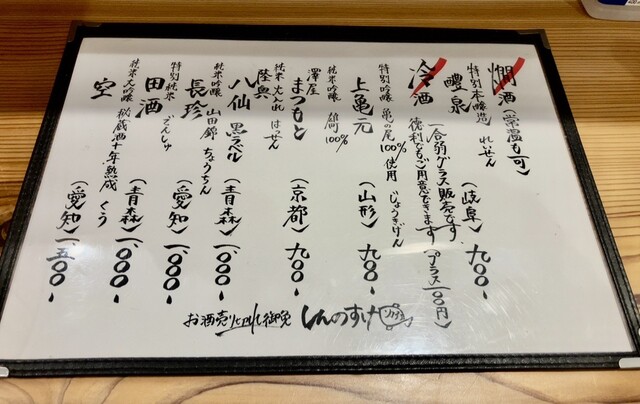 燗酒（常温も可）
特別本醸造 れいせん
醴泉（岐阜）九〇〇-
冷酒（一合弱グラス販売です
徳利でもご用意できます プラス一〇〇円）
特別純米吟醸 亀の尾100％使用 じょうきげん
上亀元（山形）九〇〇-
純米吟醸 雄町100％
澤屋まつもと（京都）九〇〇-
純米 火入れ はっせん
陸奥八仙 黒ラベル（青森）一、〇〇〇-
純米吟醸 山田錦 ちょうちん
長珍（愛知）一、〇〇〇-
特別純米 でんしゅ
田酒（青森）一、〇〇〇-
純米大吟醸 秘蔵酒十年熟成 くう
空（愛知）一、五〇〇-
お酒売り切れ御免 しんのすけ